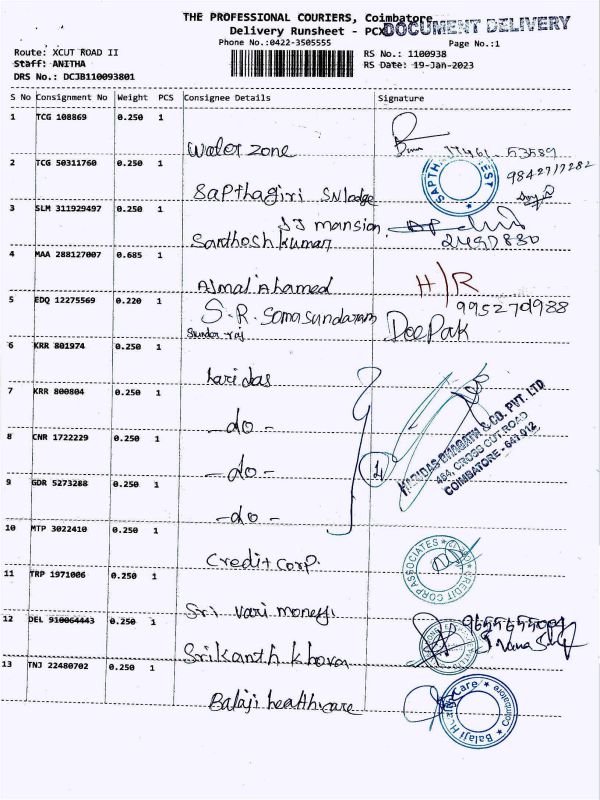 THE PROFESSIONAL COURIERS, Coimbatore
Delivery Runsheet - PCX
DOCUMENT DELIVERY
Phone No.:0422-3505555
Page No.:1
Route: XCUT ROAD II
RS No.: 1100938
Staff: ANITHA
RS Date: 19-Jan-2023
DRS No.: DCJB110093801
S No Consignment No Weight PCS Consignee Details Signature
1 TCG 108869 0.250 1
Water zone
2 TCG 50311760 0.250 1
9842717282
Sapthagiri SN lodge
3 SLM 311929497 0.250 1
JJ mansion
Santhosh kumar
4 MAA 288127007 0.685 1
Ajmal Ahamed H/R
5 EDQ 12275569 0.220 1
S.R. Somasundaram
Deepak
6 KRR 801974 0.250 1
haridas
7 KRR 800804 0.250 1
-do-
8 CNR 1722229 0.250 1
-do-
4
HARIDAS BHAGATH & CO. PVT. LTD
454, CROSS CUT ROAD
COIMBATORE - 641 012
9 GDR 5273288 0.250 1
-do-
10 MTP 3022410 0.250 1
Credit corp.
CREDIT CORP ASSOCIATES
11 TRP 1971006 0.250 1
Sri vari money
12 DEL 910064443 0.250 1
Srikanth
13 TNJ 22480702 0.250 1
Balaji healthcare
Balaji Health Care
Coimbatore